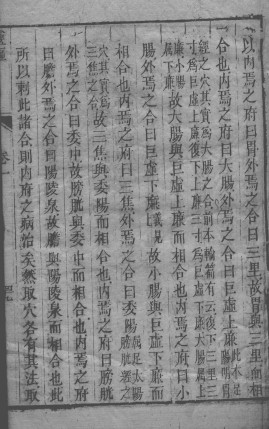 以內焉之府曰胃外焉之合曰三里故胃與三里而相
合也內焉之府曰大腸外焉之合曰巨虛上廉
經之穴其實為大腸之合
寸為巨虛上廉復下上廉三寸為巨虛下廉大腸屬上
廉小腸屬下廉故大腸與巨虛上廉而相合也內焉之府曰小
腸外焉之合曰巨虛下廉故小腸與巨虛下廉而
相合也內焉之府曰三焦外焉之合曰委陽
穴其實為三焦之合故三焦與委陽而相合也內焉之府曰膀胱
外焉之合曰委中故膀胱與委中而相合也內焉之府
曰膽外焉之合曰陽陵泉故膽與陽陵泉而相合也此
所以刺此諸合則內府之病治矣然取穴各有其法取
卷一